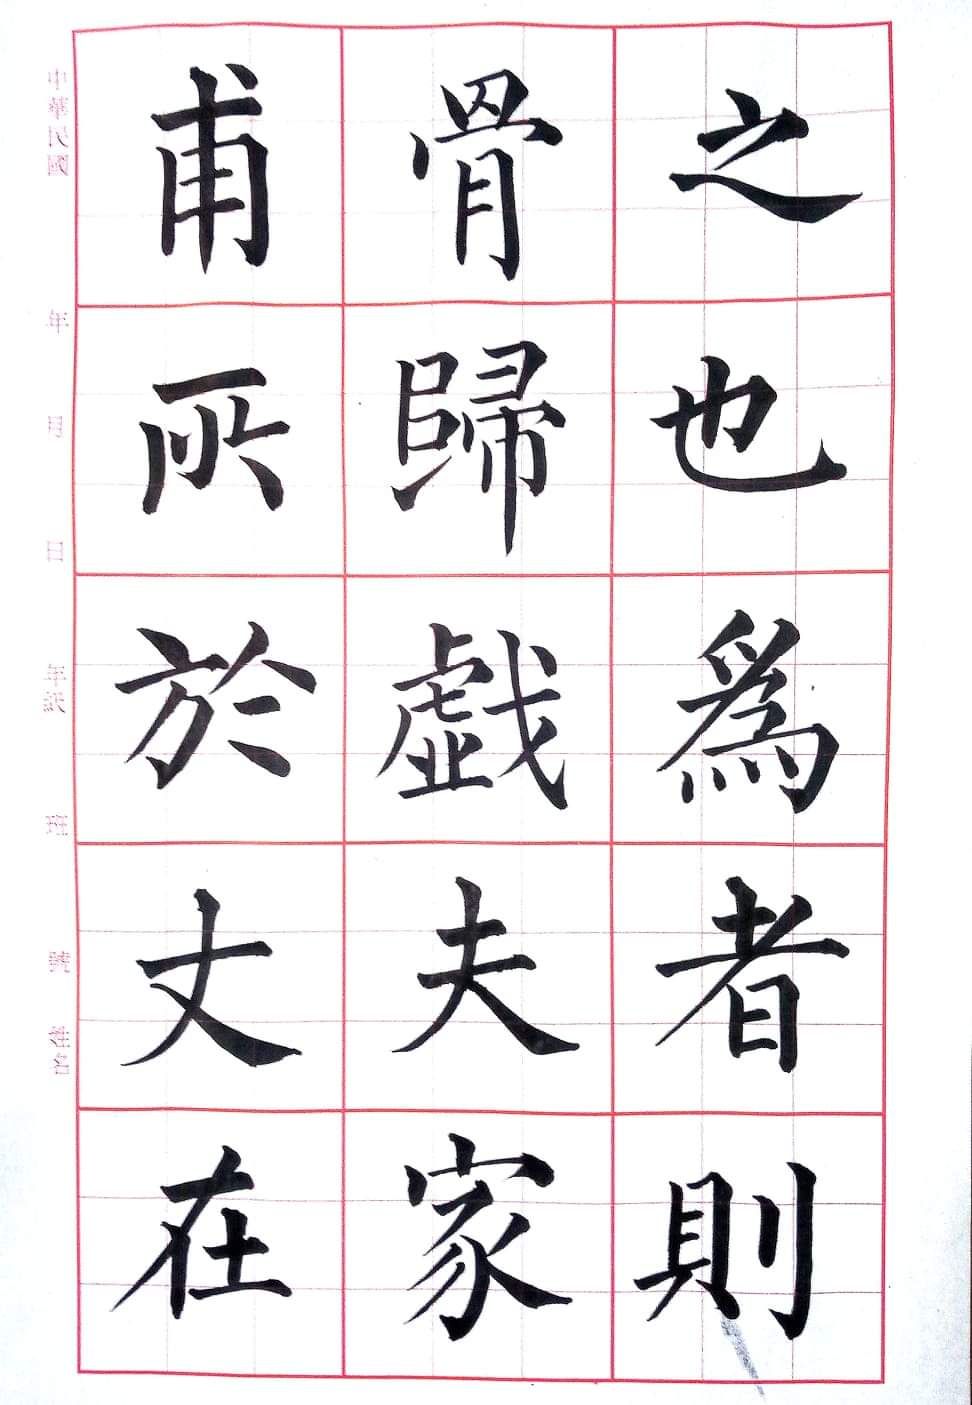 之也為者則
骨歸戲夫家
甫所於丈在
中華民國 年 月 日 年級 班 號 姓名